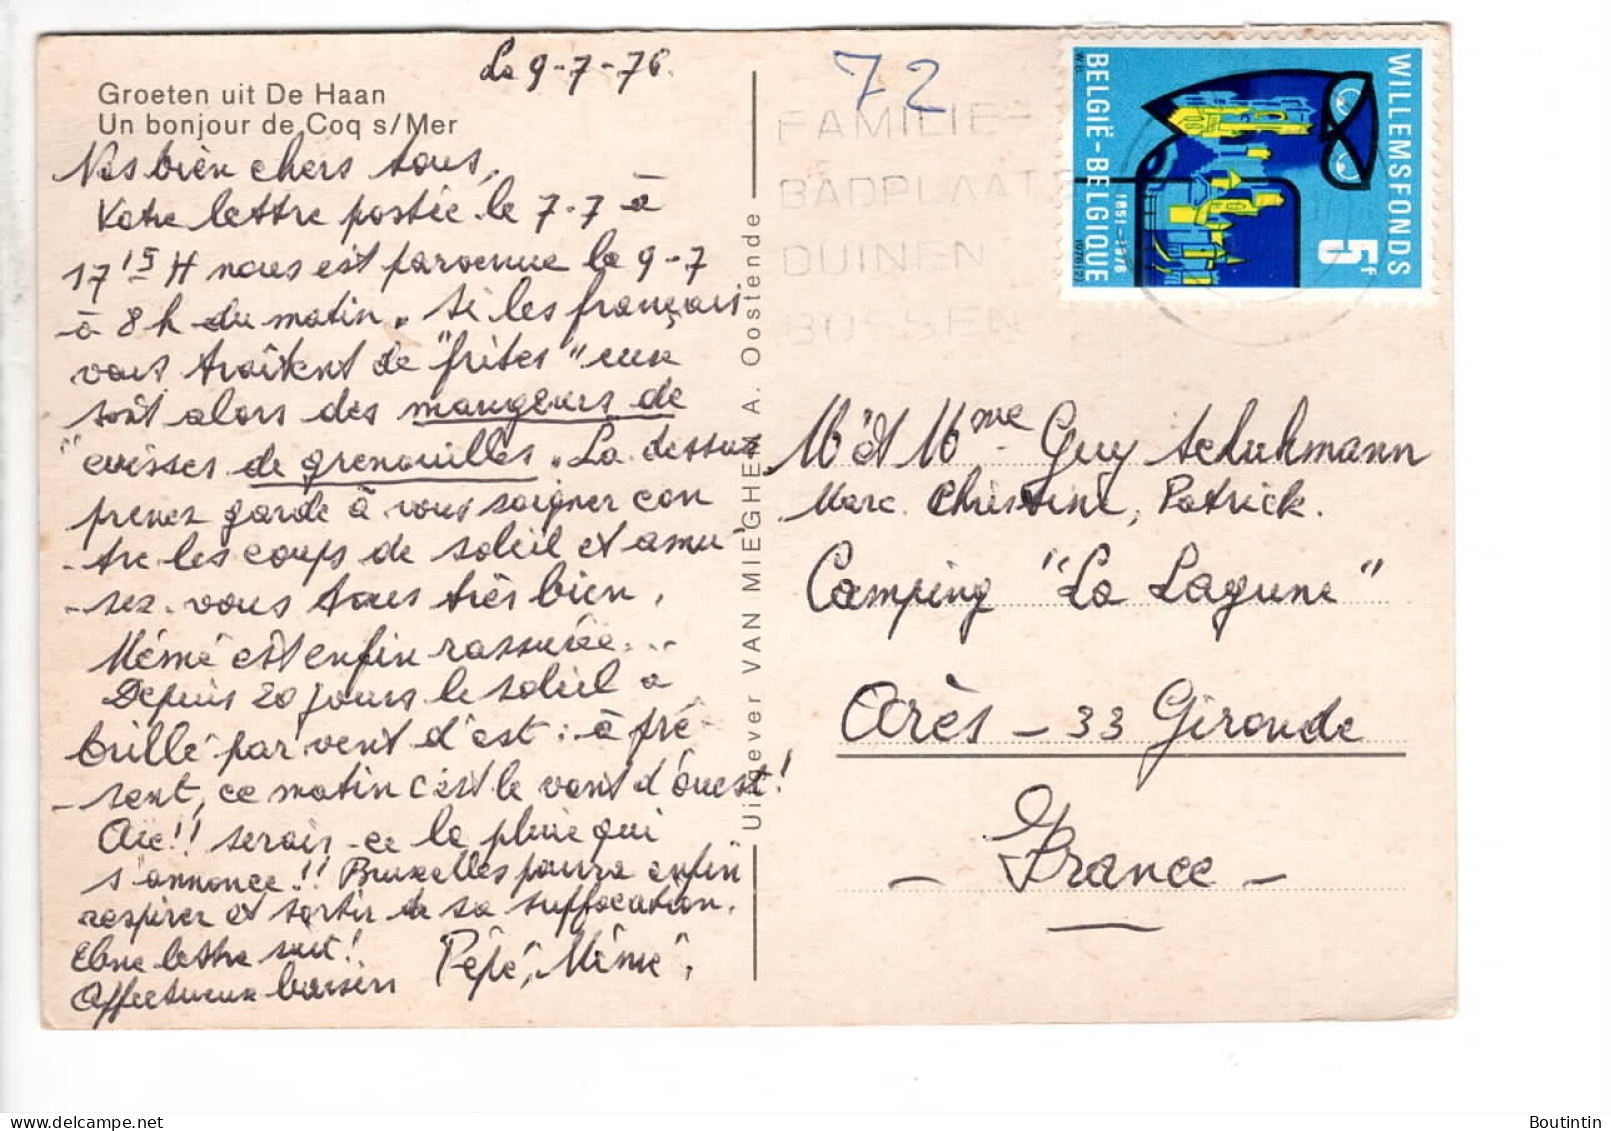 Le 9-7-76.
Groeten uit De Haan
Un bonjour de Coq s/Mer
Nos bien chers tous,
Votre lettre postée le 7-7 à
17 15 H nous est parvenue le 9-7
à 8 h du matin. Si les français
vous traitent de "frites" eux
sont alors des mangeurs de
cuisses de grenouilles. La dessus
prenez garde à vous soigner con
-tre les coups de soleil et amu
-sez-vous tous très bien.
Mémé est enfin rassurée...
Depuis 20 jours le soleil a
brillé par vent d'est: à pré-
-sent, ce matin c'est le vent d'ouest!
Aïe!! serais-ce la pluie qui
s'annonce!! Bruxelles pourra enfin
respirer et sortir de sa suffocation.
Une lettre suit!
Affectueux baisers Pépé, Mémé,
Uitgever VAN MIEGHEM A. Oostende
72
FAMILIE-
BADPLAATS
DUINEN
BOSSEN
BELGIË-BELGIQUE
1851-1976
1976
WILLEMSFONDS
5F
M et Mme Guy Schuhmann
Marc. Christine, Patrick.
Camping "La Lagune"
Arès - 33 Gironde
- France -
Boutintin